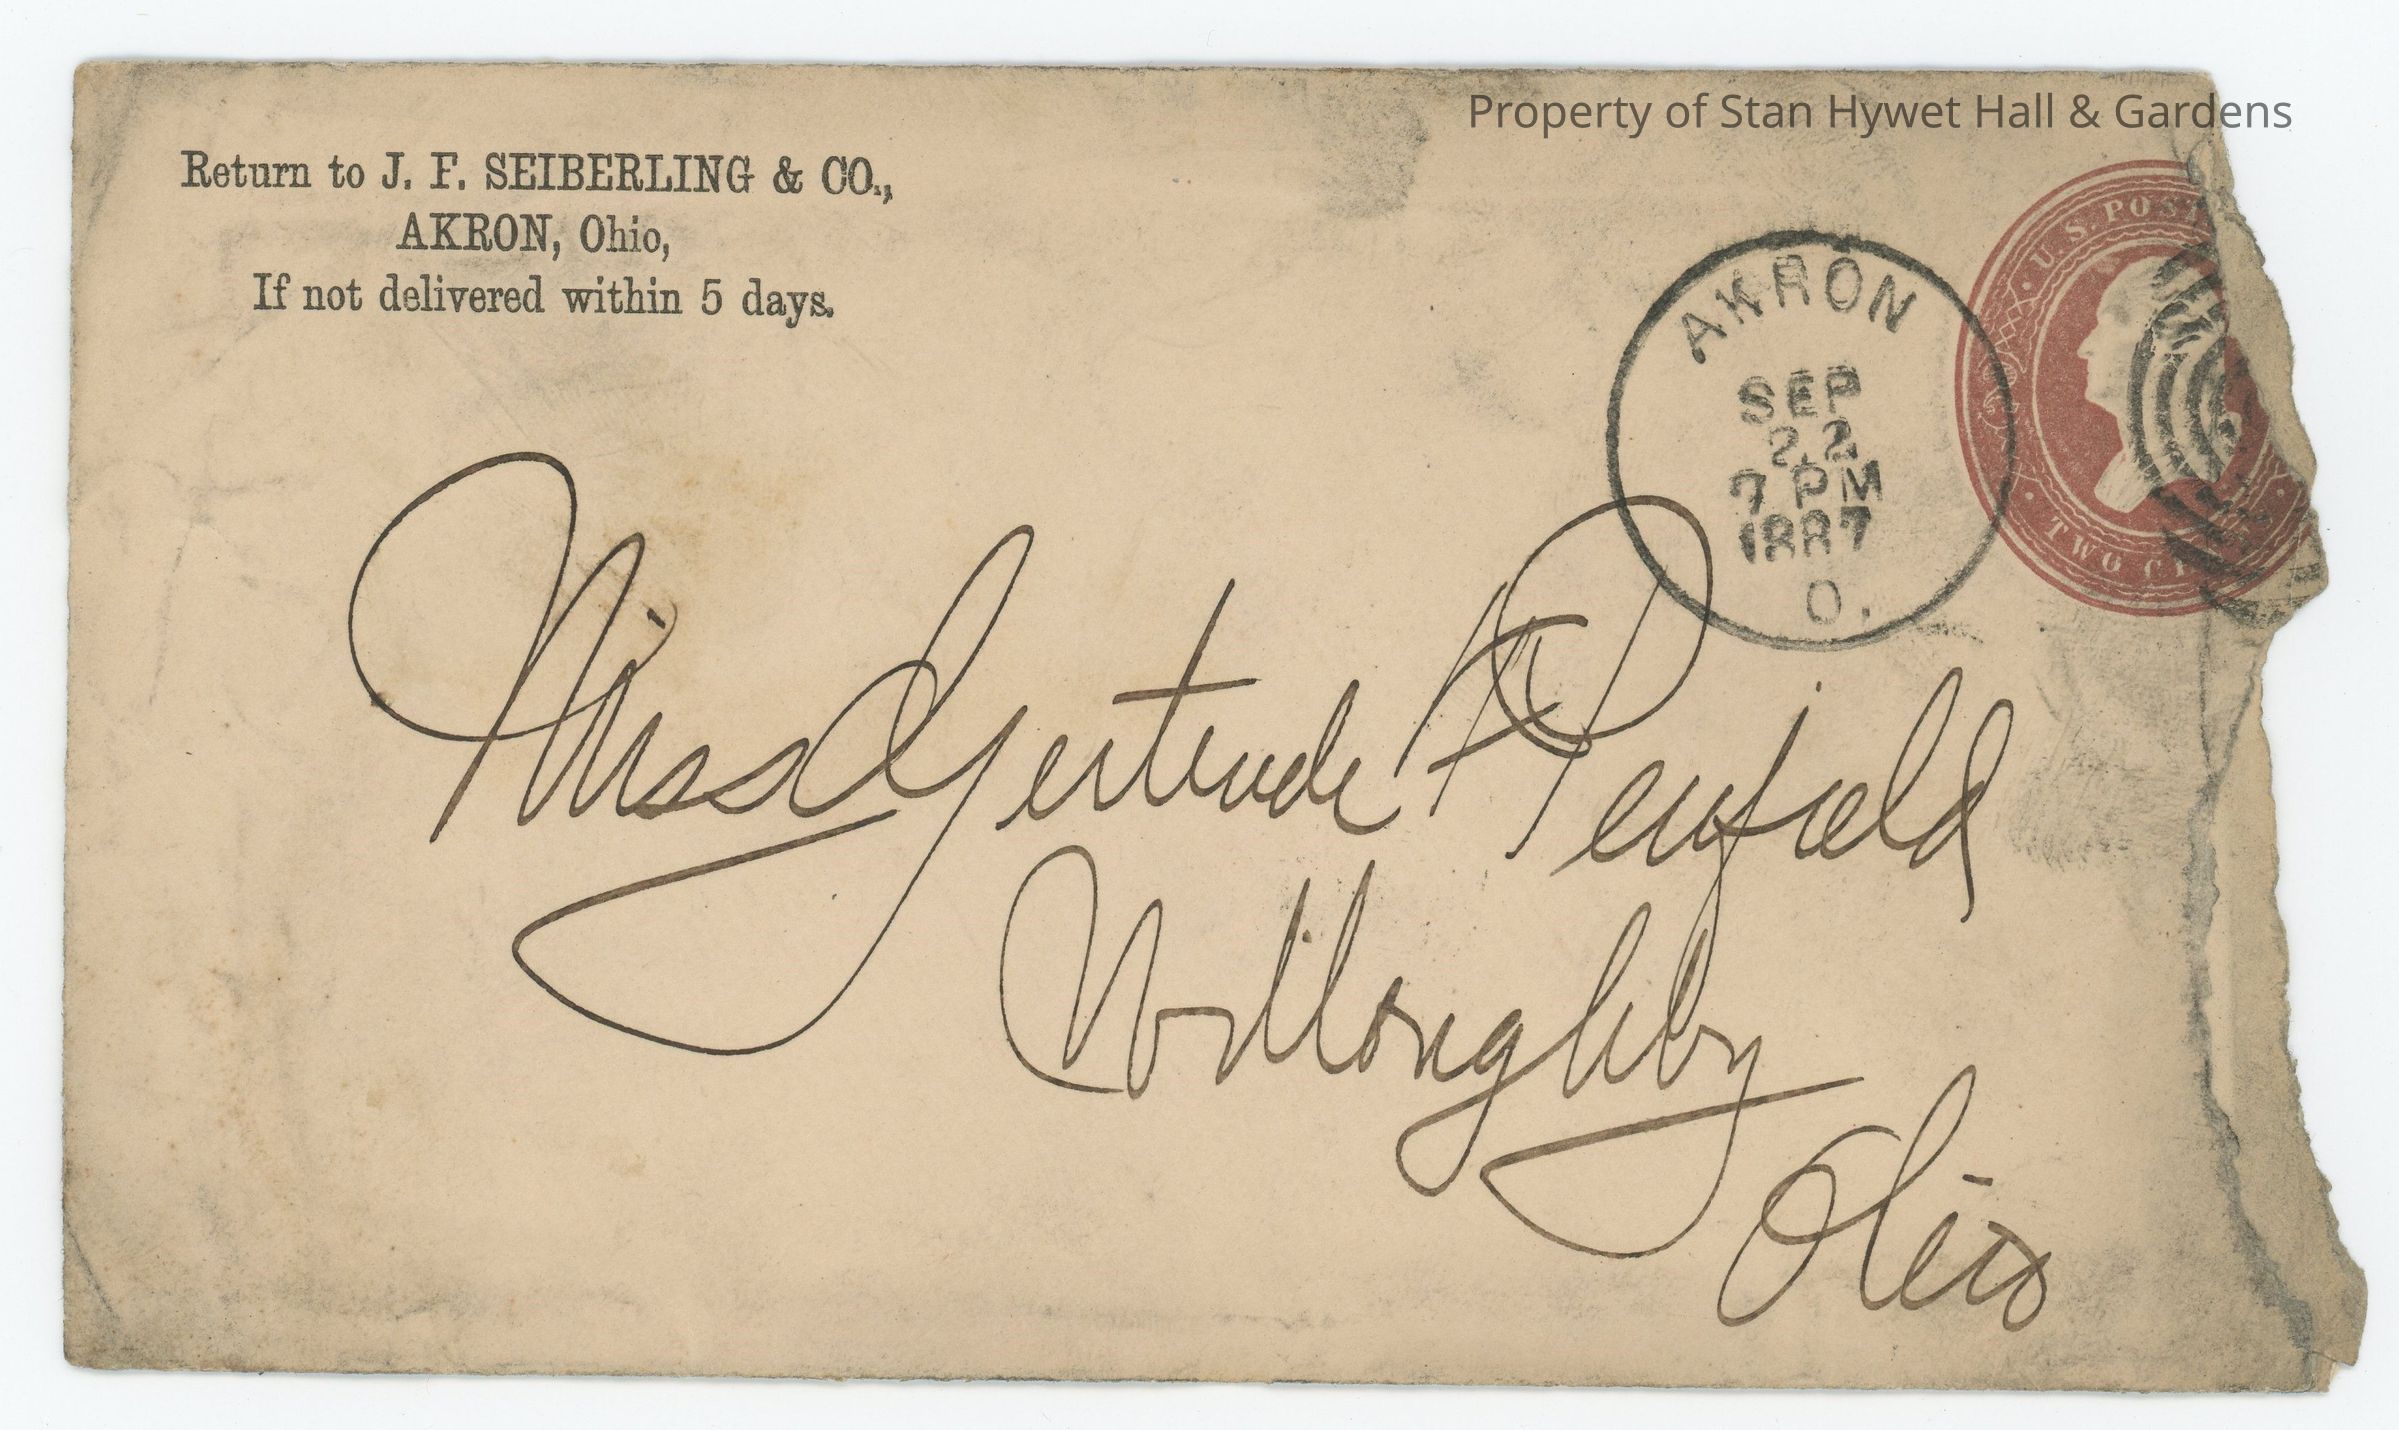 Property of Stan Hywet Hall & Gardens
Return to J. F. SEIBERLING & CO.,
AKRON, Ohio,
If not delivered within 5 days.
U.S. POST
TWO CE
AKRON
SEP
22
7 PM
1887
O.
Miss Gertrude F Penfield
Willoughby
Ohio